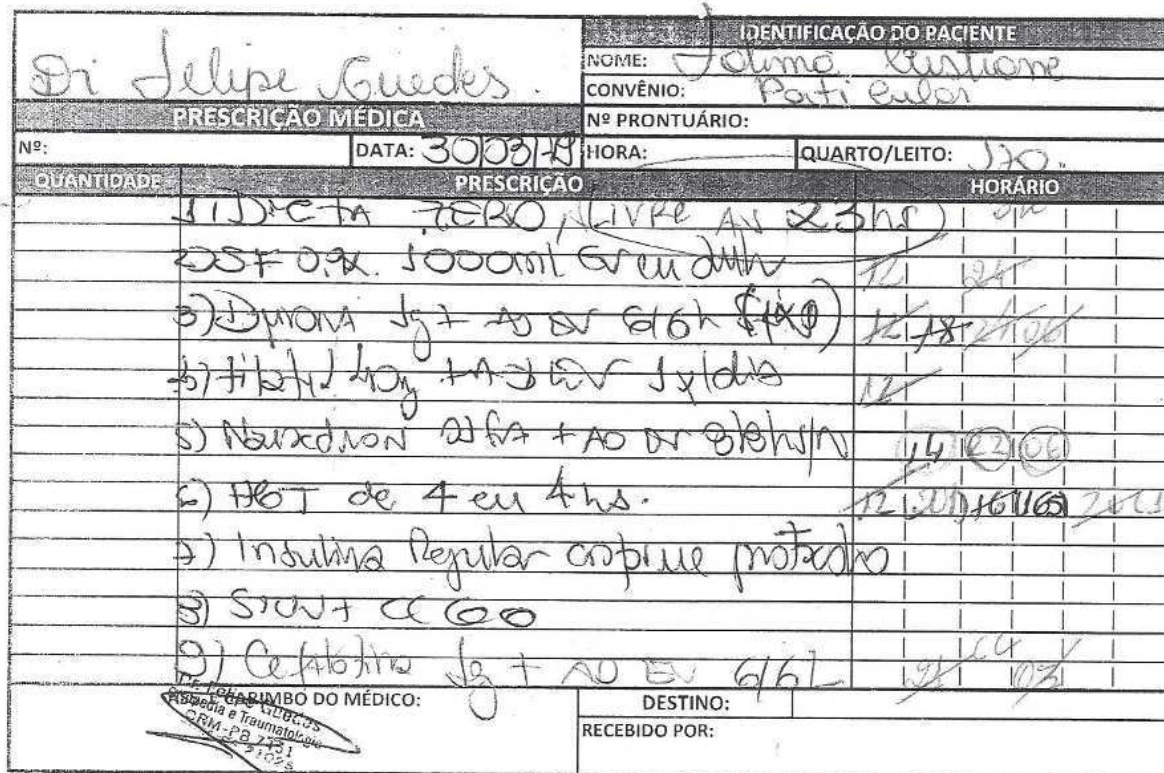 Dr Felipe Guedes.
IDENTIFICAÇÃO DO PACIENTE
NOME:
CONVÊNIO: Particular
PRESCRIÇÃO MÉDICA
Nº PRONTUÁRIO:
Nº: DATA: 30/03/19 HORA: QUARTO/LEITO: 170.
QUANTIDADE PRESCRIÇÃO HORÁRIO
1) DIETA ZERO (LIVRE 23hs)
2) SF 0,9% 1000ml EV 12 24
3) Dipirona 1g + AD EV 6/6h (fixo) 12 18 24 06
4) Tilatil 40g + AD EV 1x/dia 12
5) Nausedron + AD EV 8/8hs S/N 14 22 06
6) HGT de 4 em 4 hs. 12
7) Insulina Regular conforme protocolo
8) SSVV + CCGG
9) Cefalotina 1g + AD EV 6/6h 21 03
ASS. E CARIMBO DO MÉDICO:
Dr. Felipe Guedes
Ortopedia e Traumatologia
CRM-PB
DESTINO:
RECEBIDO POR: